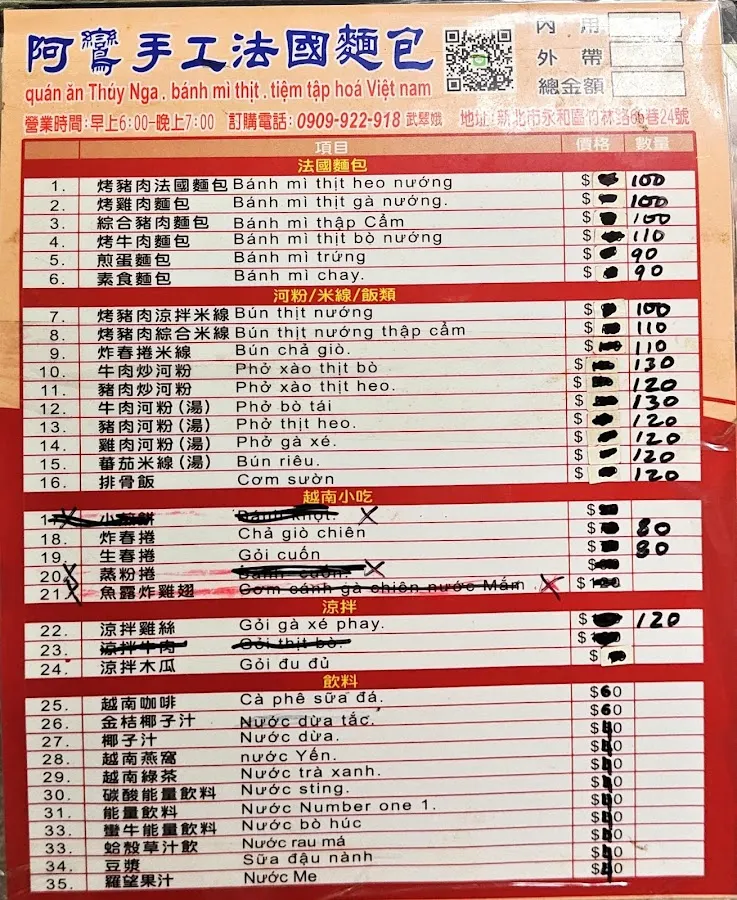 阿鸞手工法國麵包
內 用
外 帶
總金額
quán ăn Thúy Nga . bánh mì thịt . tiệm tập hoá Việt nam
營業時間:早上6:00-晚上7:00 訂購電話: 0909-922-918 武翠娥 地址:新北市永和區竹林路65巷24號
項目 價格 數量
法國麵包
1. 烤豬肉法國麵包 Bánh mì thịt heo nướng $ 100
2. 烤雞肉麵包 Bánh mì thịt gà nướng. $ 100
3. 綜合豬肉麵包 Bánh mì thập Cẩm $ 100
4. 烤牛肉麵包 Bánh mì thịt bò nướng $ 110
5. 煎蛋麵包 Bánh mì trứng $ 90
6. 素食麵包 Bánh mì chay. $ 90
河粉/米線/飯類
7. 烤豬肉涼拌米線 Bún thịt nướng $ 100
8. 烤豬肉綜合米線 Bún thịt nướng thập cẩm $ 110
9. 炸春捲米線 Bún chả giò. $ 110
10. 牛肉炒河粉 Phở xào thịt bò $ 130
11. 豬肉炒河粉 Phở xào thịt heo. $ 120
12. 牛肉河粉(湯) Phở bò tái $ 130
13. 豬肉河粉(湯) Phở thịt heo. $ 120
14. 雞肉河粉(湯) Phở gà xé. $ 120
15. 蕃茄米線(湯) Bún riêu. $ 120
16. 排骨飯 Cơm sườn $ 120
越南小吃
小煎餅 Bánh khọt. $
18. 炸春捲 Chả giò chiên $ 80
19. 生春捲 Gỏi cuốn $ 80
20. 蒸粉捲 Bánh cuốn. $
21. 魚露炸雞翅 Cơm cánh gà chiên nước Mắm $
涼拌
22. 涼拌雞絲 Gỏi gà xé phay. $ 120
23. 涼拌牛肉 Gỏi thịt bò. $
24. 涼拌木瓜 Gỏi đu đủ $
飲料
25. 越南咖啡 Cà phê sữa đá. $60
26. 金桔椰子汁 Nước dừa tắc. $60
27. 椰子汁 Nước dừa. $40
28. 越南燕窩 nước Yến. $40
29. 越南綠茶 Nước trà xanh. $40
30. 碳酸能量飲料 Nước sting. $40
31. 能量飲料 Nước Number one 1. $40
33. 蠻牛能量飲料 Nước bò húc $40
33. 蛤殼草汁飲 Nước rau má $40
34. 豆漿 Sữa đậu nành $40
35. 羅望果汁 Nước Me $40